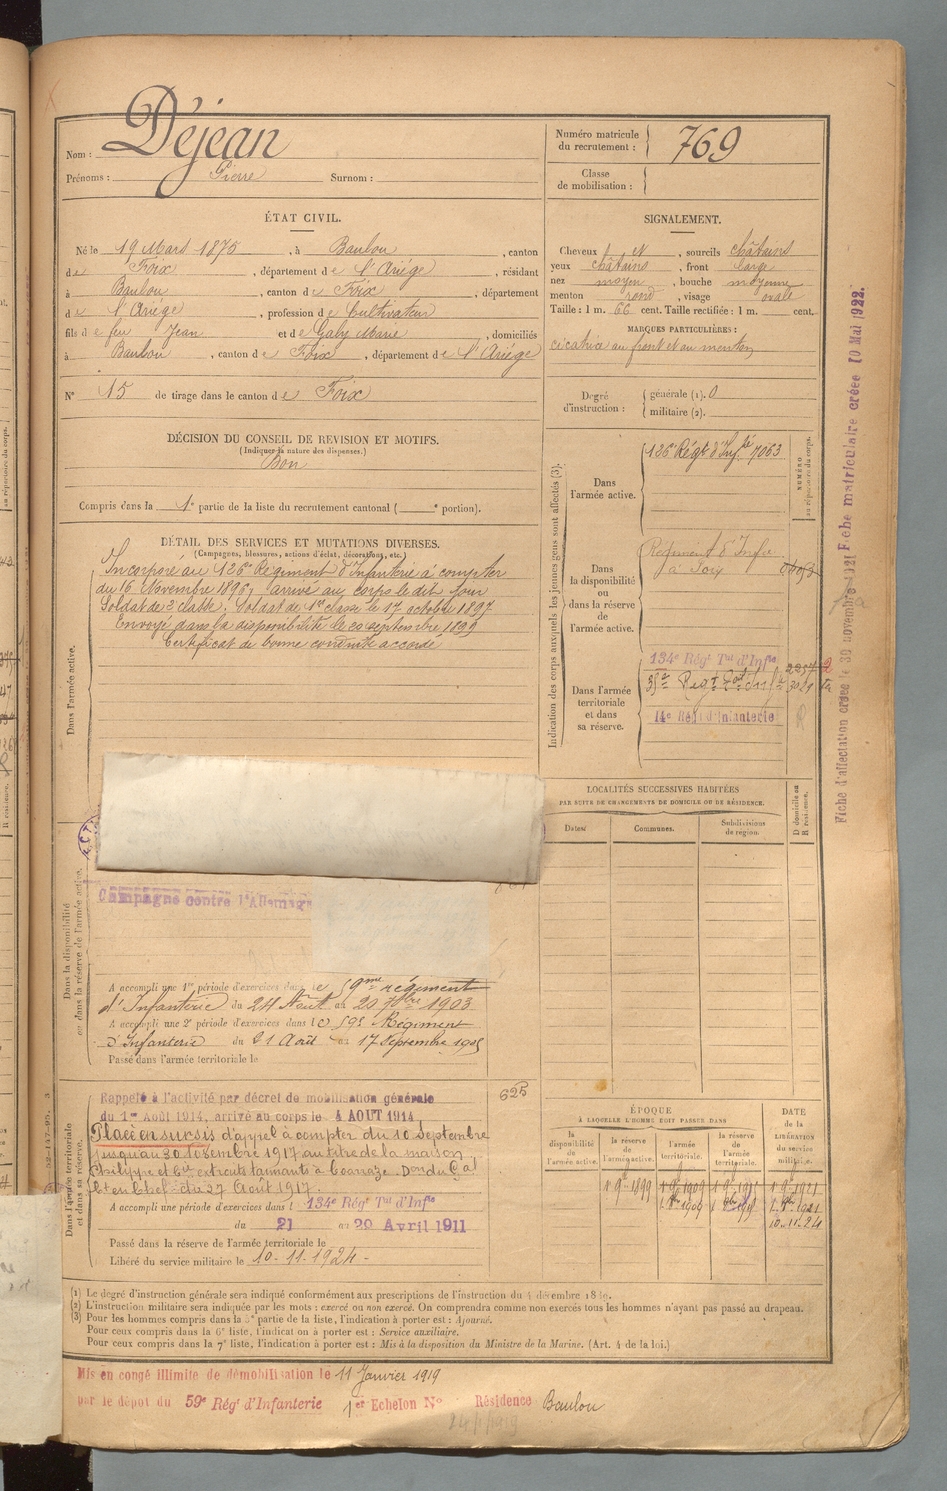 Nom : Déjean
Prénoms : Pierre Surnom :
Numéro matricule du recrutement : 769
Classe de mobilisation :
ÉTAT CIVIL.
Né le 19 Mars 1875, à Baulou, canton
de Foix, département de l'Ariége, résidant
à Baulou, canton de Foix, département
de l'Ariége, profession de Cultivateur
fils de feu Jean et de Gaby Marie, domiciliés
à Baulou, canton de Foix, département de l'Ariége
N° 15 de tirage dans le canton de Foix
SIGNALEMENT.
Cheveux et, sourcils châtains
yeux châtains, front large
nez moyen, bouche moyenne
menton rond, visage ovale
Taille : 1 m. 66 cent. Taille rectifiée : 1 m. cent.
MARQUES PARTICULIÈRES :
cicatrice au front et au menton
Degré d'instruction : générale (1). 0
militaire (2).
DÉCISION DU CONSEIL DE REVISION ET MOTIFS.
(Indiquer la nature des dispenses.)
Bon
Compris dans la 1e partie de la liste du recrutement cantonal ( e portion).
DÉTAIL DES SERVICES ET MUTATIONS DIVERSES.
(Campagnes, blessures, actions d'éclat, décorations, etc.)
Dans l'armée active.
Incorporé au 126e Régiment d'Infanterie à compter
du 16 Novembre 1896, arrivé au corps le dit jour
Soldat de 2e classe. Soldat de 1re classe le 17 octobre 1897
Envoyé dans la disponibilité le 20 septembre 1899
Certificat de bonne conduite accordé
Indication des corps auxquels les jeunes gens sont affectés (3).
NUMÉRO au répertoire du corps.
Dans l'armée active.
126e Régt d'Infie 7063
Dans la disponibilité ou dans la réserve de l'armée active.
Régiment d'Infie
à Foix
Dans l'armée territoriale et dans sa réserve.
134e Régt Tal d'Infie
14e Régt d'Infanterie
Fiche d'affectation créée le 30 novembre 1921 Fiche matriculaire créée 10 Mai 1922.
LOCALITÉS SUCCESSIVES HABITÉES
PAR SUITE DE CHANGEMENTS DE DOMICILE OU DE RÉSIDENCE.
Dates. Communes. Subdivisions de région. D domicile ou R résidence.
Dans la disponibilité ou dans la réserve de l'armée active.
Campagne contre l'Allemagne
A accompli une 1re période d'exercices dans le 59me régiment
d'Infanterie du 24 Août au 20 7bre 1903
A accompli une 2e période d'exercices dans le 59e Régiment
d'Infanterie du 21 Août au 17 Septembre 1905
Passé dans l'armée territoriale le
Dans l'armée territoriale et dans sa réserve.
625
Rappelé à l'activité par décret de mobilisation générale
du 1er Août 1914, arrivé au corps le 4 AOUT 1914
Placé en sursis d'appel à compter du 10 Septembre
jusqu'au 30 Novembre 1917 au titre de la maison
Philippe et Cie extraits tannants à Coarraze. Don du Gal
Ct en Chef du 27 Août 1917.
A accompli une période d'exercices dans l 134e Régt Tal d'Infie
du 21 au 29 Avril 1911
Passé dans la réserve de l'armée territoriale le
Libéré du service militaire le 10-11-1924
ÉPOQUE
À LAQUELLE L'HOMME DOIT PASSER DANS
la disponibilité de l'armée active. la réserve de l'armée active. l'armée territoriale. la réserve de l'armée territoriale.
DATE de la LIBÉRATION du service militaire.
1 9bre 1899 1 9bre 1909 1 9bre 1915 1 9bre 1921
1 8bre 1909 1 8bre 1915 1 8bre 1921
10-11-24
(1) Le degré d'instruction générale sera indiqué conformément aux prescriptions de l'instruction du 4 décembre 1889.
(2) L'instruction militaire sera indiquée par les mots : exercé ou non exercé. On comprendra comme non exercés tous les hommes n'ayant pas passé au drapeau.
(3) Pour les hommes compris dans la 5e partie de la liste, l'indication à porter est : Ajourné.
Pour ceux compris dans la 6e liste, l'indication à porter est : Service auxiliaire.
Pour ceux compris dans la 7e liste, l'indication à porter est : Mis à la disposition du Ministre de la Marine. (Art. 4 de la loi.)
Mis en congé illimité de démobilisation le 11 Janvier 1919
par le dépôt du 59e Régt d'Infanterie 1er Echelon No Résidence Baulou